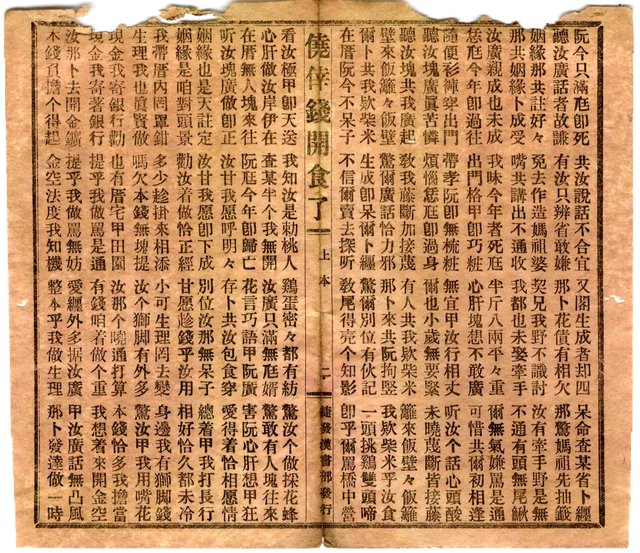 阮今只滿尫卽死 共汝說話不合宜 又閣生成者却四 呆命查某省卜纏
聽汝廣話者故謙 有汝只辨省敢嫌 那卜花債有相欠 那驚媽祖先抽籤
姻緣那共註好々 免去作造媽祖婆 契兄我野不識討 汝有牽手野是無
那共姻緣卜成受 嘴共講出不通收 我都也未娶牽手 不通有頭無尾鰍
汝廣親成也未成 我昧今年者死尫 半斤八兩平々重 爾無氣嫌罵是通
恁尫今年卽過往 出門格甲卽巧粧 心肝塊想不敢廣 可惜共爾初相逢
隨便衫褲穿出門 帶孝阮卽無梳粧 無宜甲汝行相丈 听汝个話心頭酸
聽汝塊廣眞苦憐 煩惱恁尫卽過身 爾也小歲無要緊 未曉蔑斷皆接藤
聽汝塊共我廣起 敎我藤斷加接蔑 有人共我欺柴米 籬來飯壁々飯籬
壁來飯籬々飯壁 驚爾廣話恰力邪 那卜來共阮拘竪 我欺柴米乎汝食
爾卜共我欺柴米 生成卽呆爾卜纏 驚爾別位有伙記 一頭挑鷄雙頭啼
在厝阮今不呆子 不信爾賣去探听 敎尾得完个知影 卽乎爾罵橋中營
僥倖錢開食了 上本 二 捷發漢書部發行
看汝極甲卽天送 我知汝是勅桃人 鷄蛋密々都有紡 驚汝个做採花蜂
心肝做汝岸伊在 查某半个我無開 汝廣只滿無尫婿 驚敢有人塊往來
在厝無人塊來往 阮尫今年卽歸亡 花言巧語甲阮廣 害阮心肝想甲狂
听汝塊廣做卽正 汝甘我愿呼明々 存卜共汝包食穿 愛得着恰相愿情
姻緣也是天註定 汝甘我愿卽下成 別位汝那無呆子 總着甲我打長行
姻緣是咱對頭景 勸汝着做恰正經 甘愿趁錢乎汝用 相好恰久都未冷
我帶厝內罔罩鉗 多少趁掛來相添 小可生理罔去變 身邊我有獅脚錢
生理我也眞賢做 嗎欠本錢無塊提 汝个獅脚有外多 驚汝甲我用嘴花
現金我寄銀行勸 也有厝宅甲田園 汝那个曉通打算 本錢恰多我擔當
現金我寄著銀行 提乎我做罵是通 有錢咱着做个重 我想着來開金空
汝那卜去開金鑛 提乎我做罵無妨 愛纏外多据汝廣 甲汝廣話無凸風
本錢負擔个得起 金空法度我知機 整本乎我做生理 那卜發達做一時